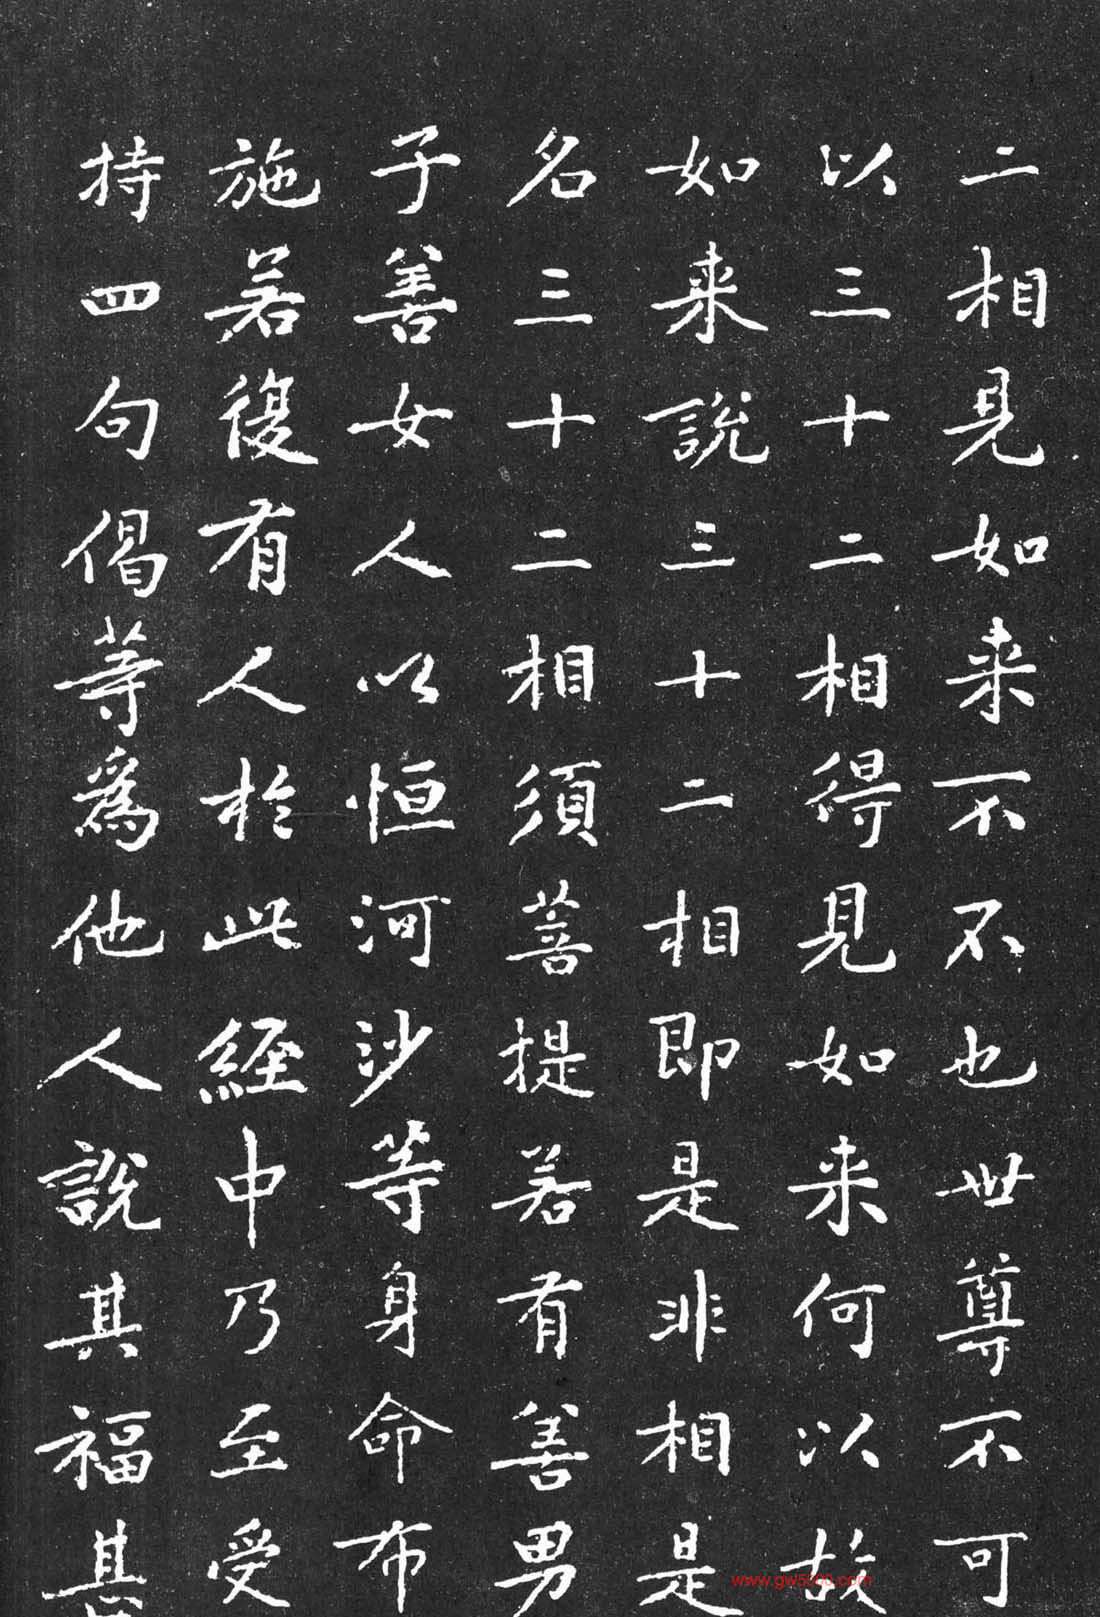 二相見如来不不也世尊不可
以三十二相得見如来何以故
如来說三十二相即是非相是
名三十二相須菩提若有善男
子善女人以恒河沙等身命布
施若復有人於此經中乃至受
持四句偈等爲他人說其福甚
www.gw5000.com